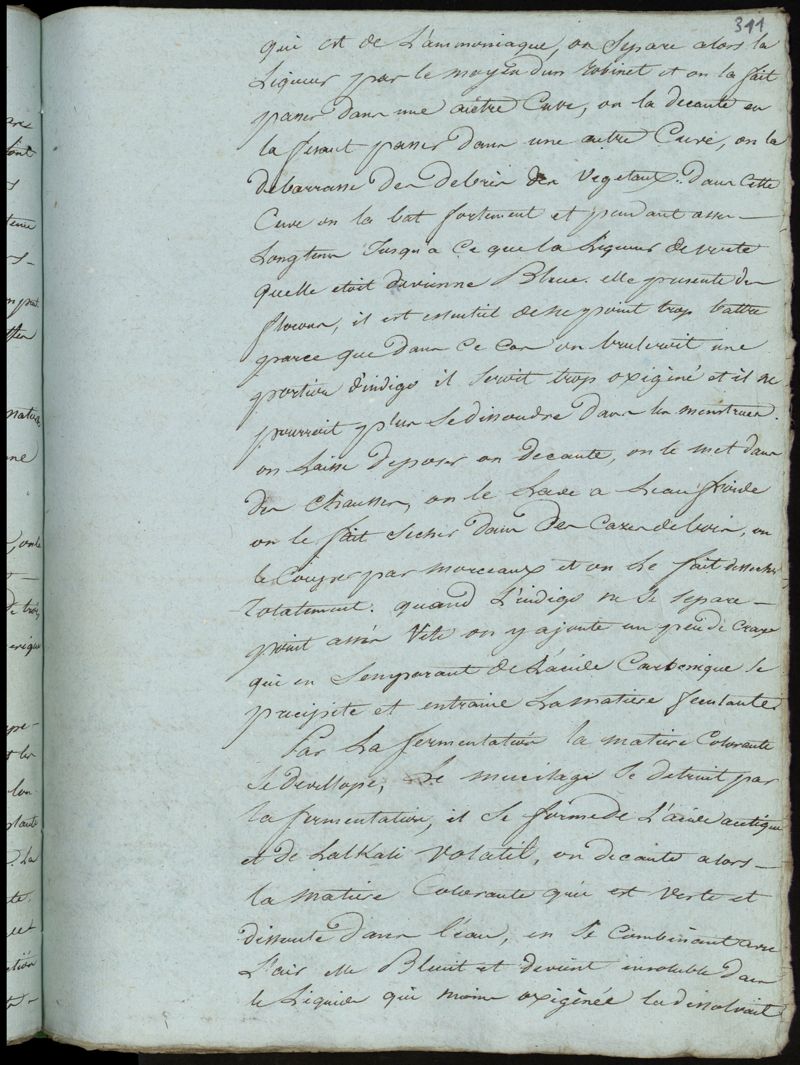 311
qui est de L'ammoniaque, on separe alors la
Liqueur par le moyen d'un robinet et on la fait
passer dans une autre Cuve, on la decante en
la fesant passer dans une autre Cuve, on la
debarrasse des debris des vegetaux. dans cette
Cuve on la bat fortement et pendant assez
Longtems Jusqu'a ce que la Liqueur de verte
quelle etoit devienne Bleue. elle presente des
flocons, il est essentiel de ne point trop battre
parce que dans ce cas on bruleroit une
portion d'indigo il seroit trop oxigéné et il ne
pourroit plus se dissoudre dans les menstrues.
on Laisse deposer on decante, on le met dans
des chausses, on le Lave a L'eau froide
on le fait secher dans des Cazes de bois, on
le Couper par morceaux et on Le fait dessecher
totalement. quand L'indigo ne se separe
point assès Vite on y ajoute un peu de craye
qui en s'emparant de L'acide Carbonique le
précipite et entraine La matiere feculante
Par La fermentation la matiere Colorante
se devellope, Le mucilage se detruit par
la fermentation, il se forme de L'acide acetique
et de Lalkali volatil, on decante alors
la matiere Colorante qui est verte et
dissoute dans l'eau, en se Combinant avec
L'air elle Bleuit et devient insoluble dans
le Liquide qui moins oxigénée la dissolvait